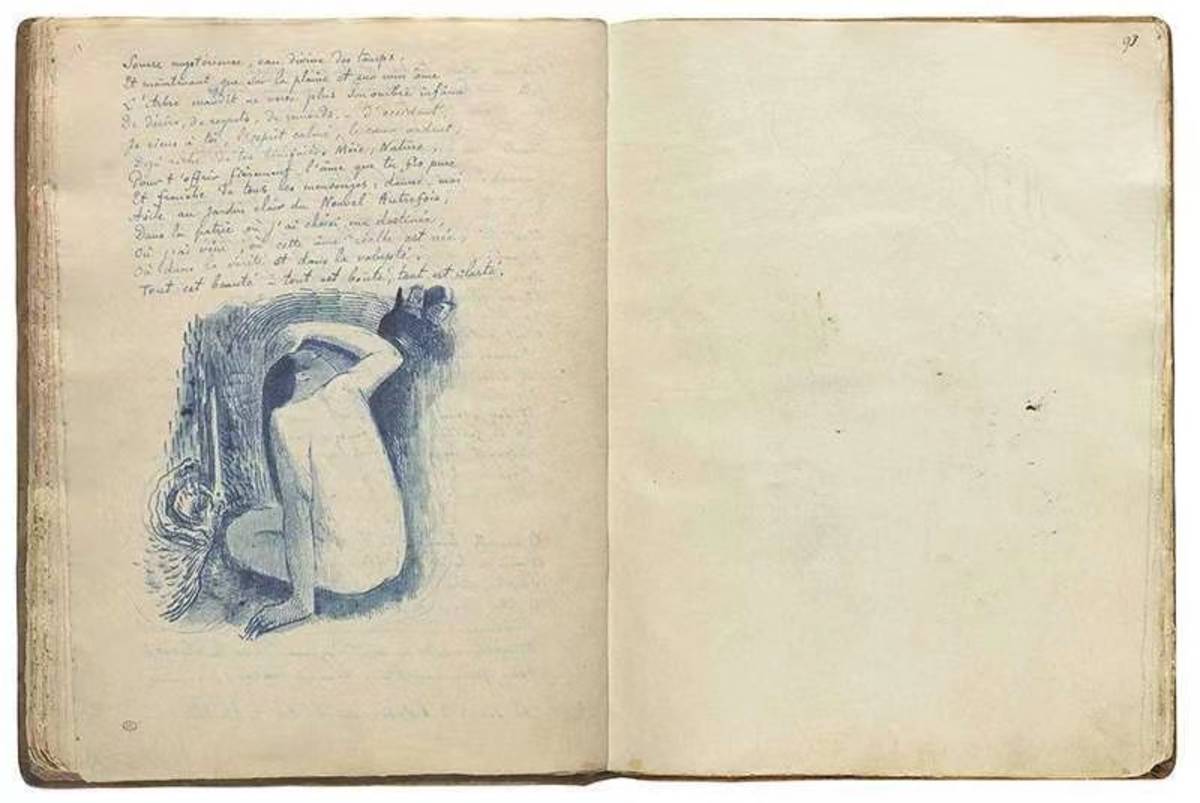 Source mystérieuse, eau divine des temps.
Et maintenant que sur la plaine et sur mon âme
L'Arbre maudit ne verse plus son ombre infâme
De désirs, de regrets, de remords, – d'occident,
Je viens à toi, l'esprit calmé, le cœur ardent,
Déjà riche de tes bienfaits, Mère, Nature,
Pour t'offrir fièrement l'âme que tu fis pure
Et franche de tous les mensonges : donne-moi
Asile au jardin clair du Nouvel Autrefois,
Dans la patrie où j'ai choisi ma destinée,
Où j'ai vécu, où cette âme réelle est née,
Où dans la vérité et dans la volupté.
Tout est beauté – tout est bonté, tout est clarté.
93